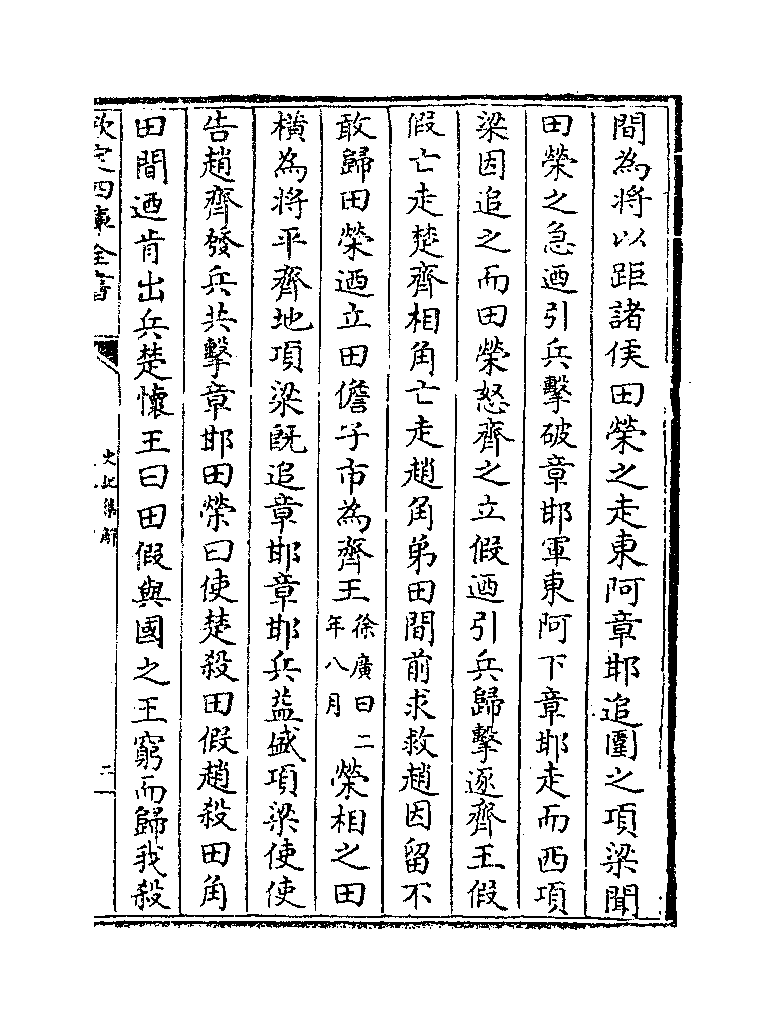 間為將以距諸侯田榮之走東阿章邯追圍之項梁聞
田榮之急迺引兵擊破章邯軍東阿下章邯走而西項
梁因追之而田榮怒齊之立假迺引兵歸擊逐齊王假
假亡走楚齊相角亡走趙角弟田間前求救趙因留不
敢歸田榮迺立田儋子市為齊王徐廣曰二年八月榮相之田
橫為將平齊地項梁既追章邯章邯兵益盛項梁使使
告趙齊發兵共擊章邯田榮曰使楚殺田假趙殺田角
田間迺肯出兵楚懷王曰田假與國之王窮而歸我殺
欽定四庫全書
史記集解
二